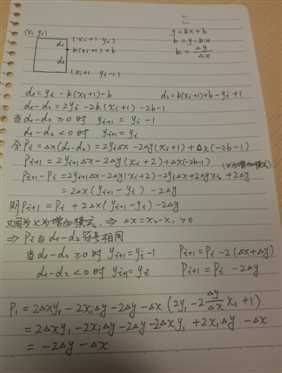 (xi yi)
(xi+1 yi)
y=kx+b
d1
k(xi+1)+b
b=y-kx
d2
k=Δy/Δx
(xi+1 yi-1)
d1=yi-k(xi+1)-b d2=k(xi+1)+b-yi+1
d1-d2=2yi-2k(xi+1)-2b-1
当d1-d2≥0时 yi+1=yi-1
d1-d2<0时 yi+1=yi
令Pi=Δx(d1-d2)=2yiΔx-2Δy(xi+1)+Δx(-2b-1)
Pi+1=2yi+1Δx-2Δy(xi+2)+Δx(-2b-1) (x为增加模式)
Pi+1-Pi=2yi+1Δx-2Δy(xi+2)-2yiΔx+2Δyxi+2Δy
=2Δx(yi+1-yi)-2Δy
则Pi+1=Pi+2Δx(yi+1-yi)-2Δy
又因为x为增加模式,⇒Δx=x2-x1>0
⇒Pi与d1-d2符号相同
当d1-d2≥0时 yi+1=yi-1 Pi+1=Pi-2(Δx+Δy)
d1-d2<0时 yi+1=yi Pi+1=Pi-2Δy
P1=2Δxy1-2x1Δy-2Δy-Δx(2y1-2Δy/Δx x1+1)
=2Δxy1-2x1Δy-2Δy-2Δxy1+2x1Δy-Δx
=-2Δy-Δx